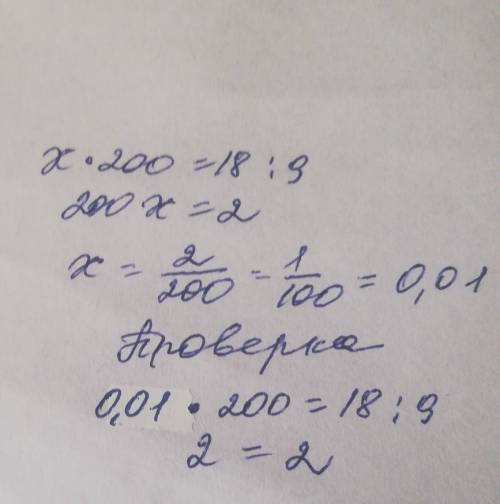 x • 200 = 18 : 9
200 x = 2
x = 2/200 = 1/100 = 0,01
Проверка
0,01 • 200 = 18 : 9
2 = 2